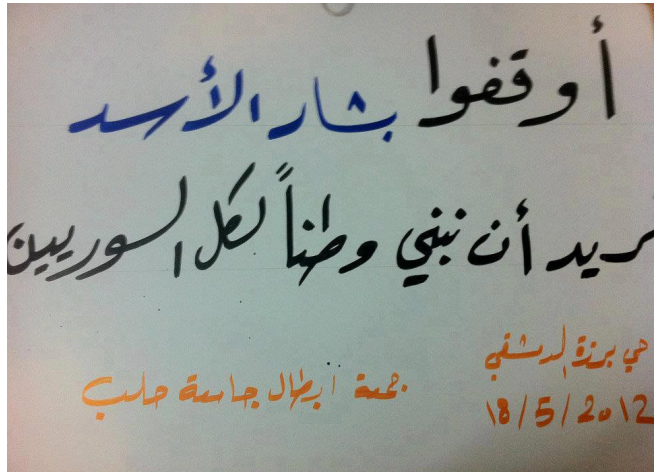 أوقفوا بشار الأسد
نريد أن نبني وطناً لكل السوريين
حي برزة الدمشقي
18/5/2012
جمعة ابطال جامعة حلب